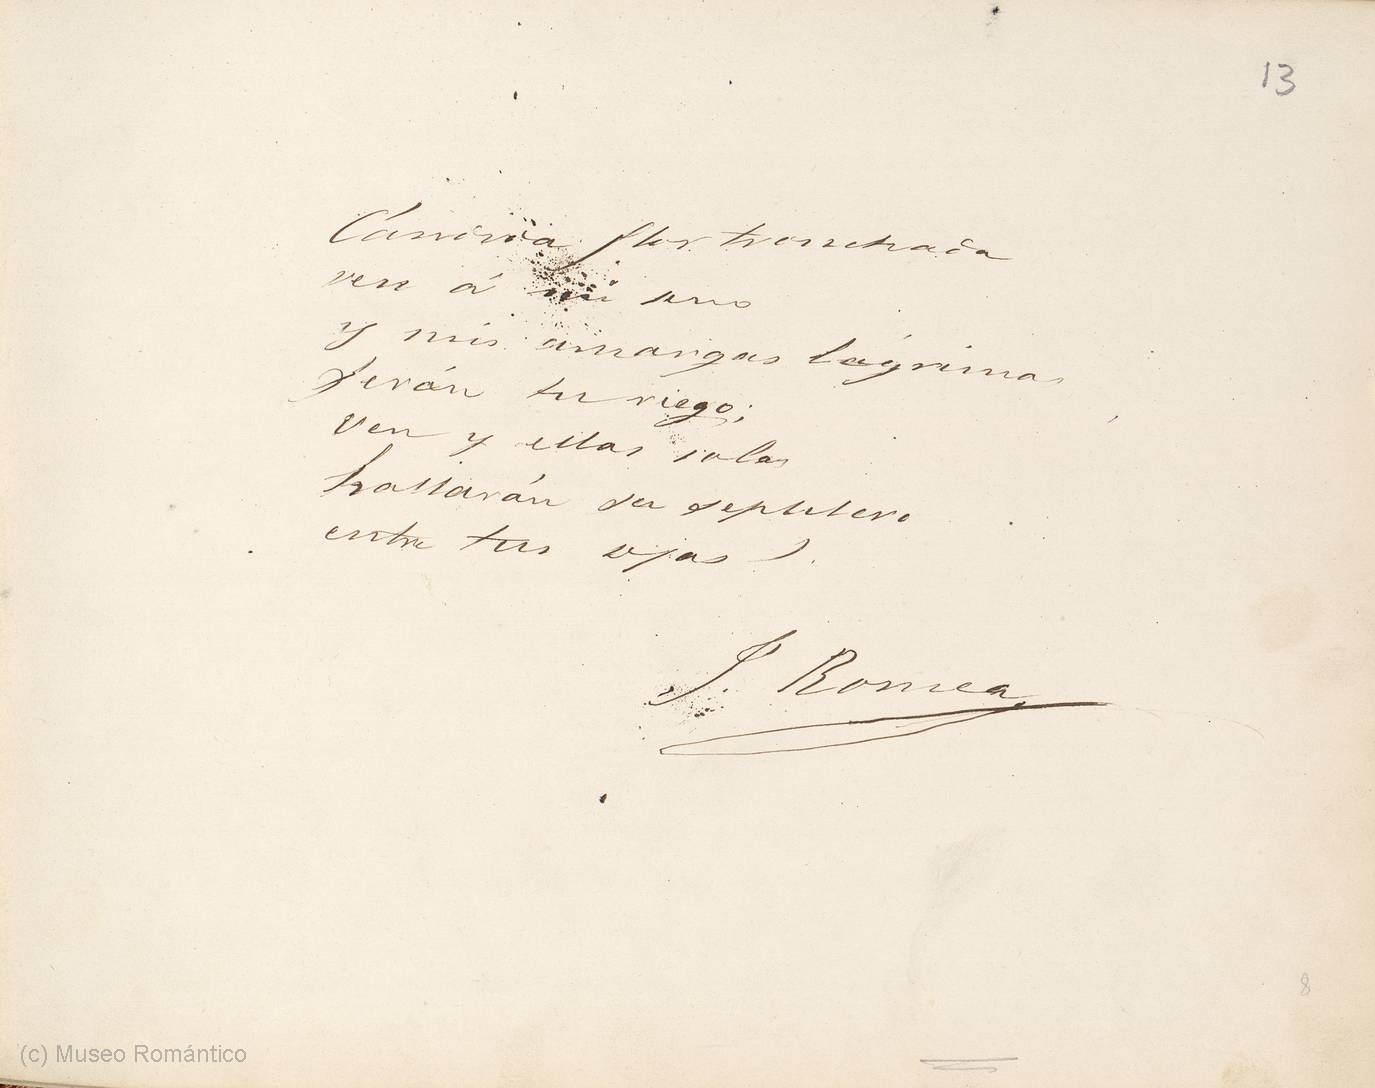 13
Cándida flor tronchada
ven á mi seno
y mis amargas lágrimas
Serán tu riego;
ven y ellas solas
hallarán su seplulcro
entre tus ojas).
J. Romea
8
(c) Museo Romántico